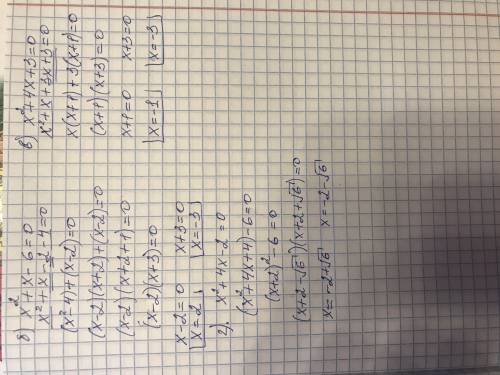 б) x²+x-6=0
x²+x-2-4=0
(x²-4)+(x-2)=0
(x-2)(x+2)+(x-2)=0
(x-2)(x+2+1)=0
(x-2)(x+3)=0
x-2=0 x+3=0
x=2, x=-3
г). x²+4x-2=0
(x²+4x+4)-6=0
(x+2)²-6=0
(x+2-√6)(x+2+√6)=0
x=-2+√6 x=-2-√6
в) x²+4x+3=0
x²+x+3x+3=0
x(x+1)+3(x+1)=0
(x+1)(x+3)=0
x+1=0 x+3=0
x=-1 x=-3